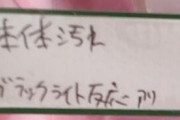 本体汚れ
ブラックライト反応アリ